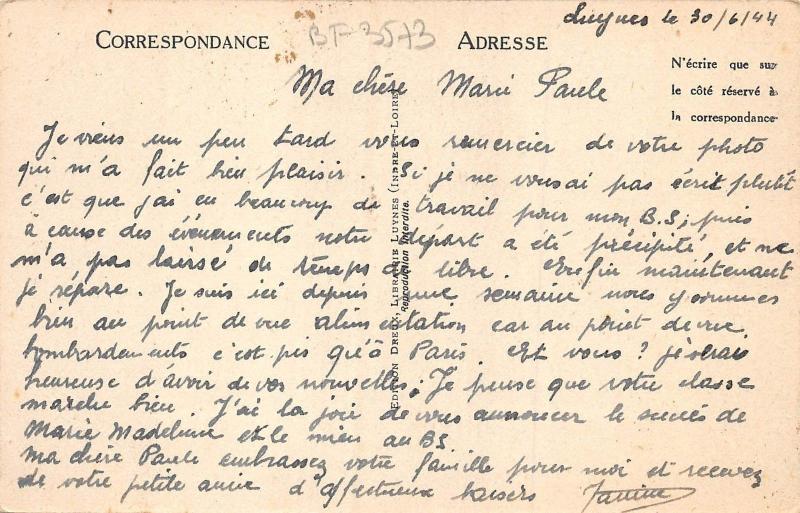 Luynes le 30/6/44
BF-3573
CORRESPONDANCE
ADRESSE
N'écrire que sur
le côté réservé à
la correspondance
Ma chère Marie Paule
Je viens un peu tard vous remercier de votre photo
qui m'a fait bien plaisir. Si je ne vous ai pas écrit plutôt
c'est que j'ai eu beaucoup de travail pour mon B.S; puis
à cause des événements notre départ a été précipité, et ne
m'a pas laissé de temps de libre. Enfin maintenant
je répare. Je suis ici depuis une semaine nous y sommes
bien au point de vue alimentation car au point de vue
bombardements c'est pis qu'à Paris. Et vous? je serais
heureuse d'avoir de vos nouvelles; Je pense que votre classe
marche bien. J'ai la joie de vous annoncer le succés de
Marie Madeleine et le mien au BS
ma chère Paule embrassez votre famille pour moi et recevez
de votre petite amie d'affectueux baisers Janine
EDITION DREUX, LIBRAIRIE LUYNES (INDRE-ET-LOIRE)
Reproduction Interdite.